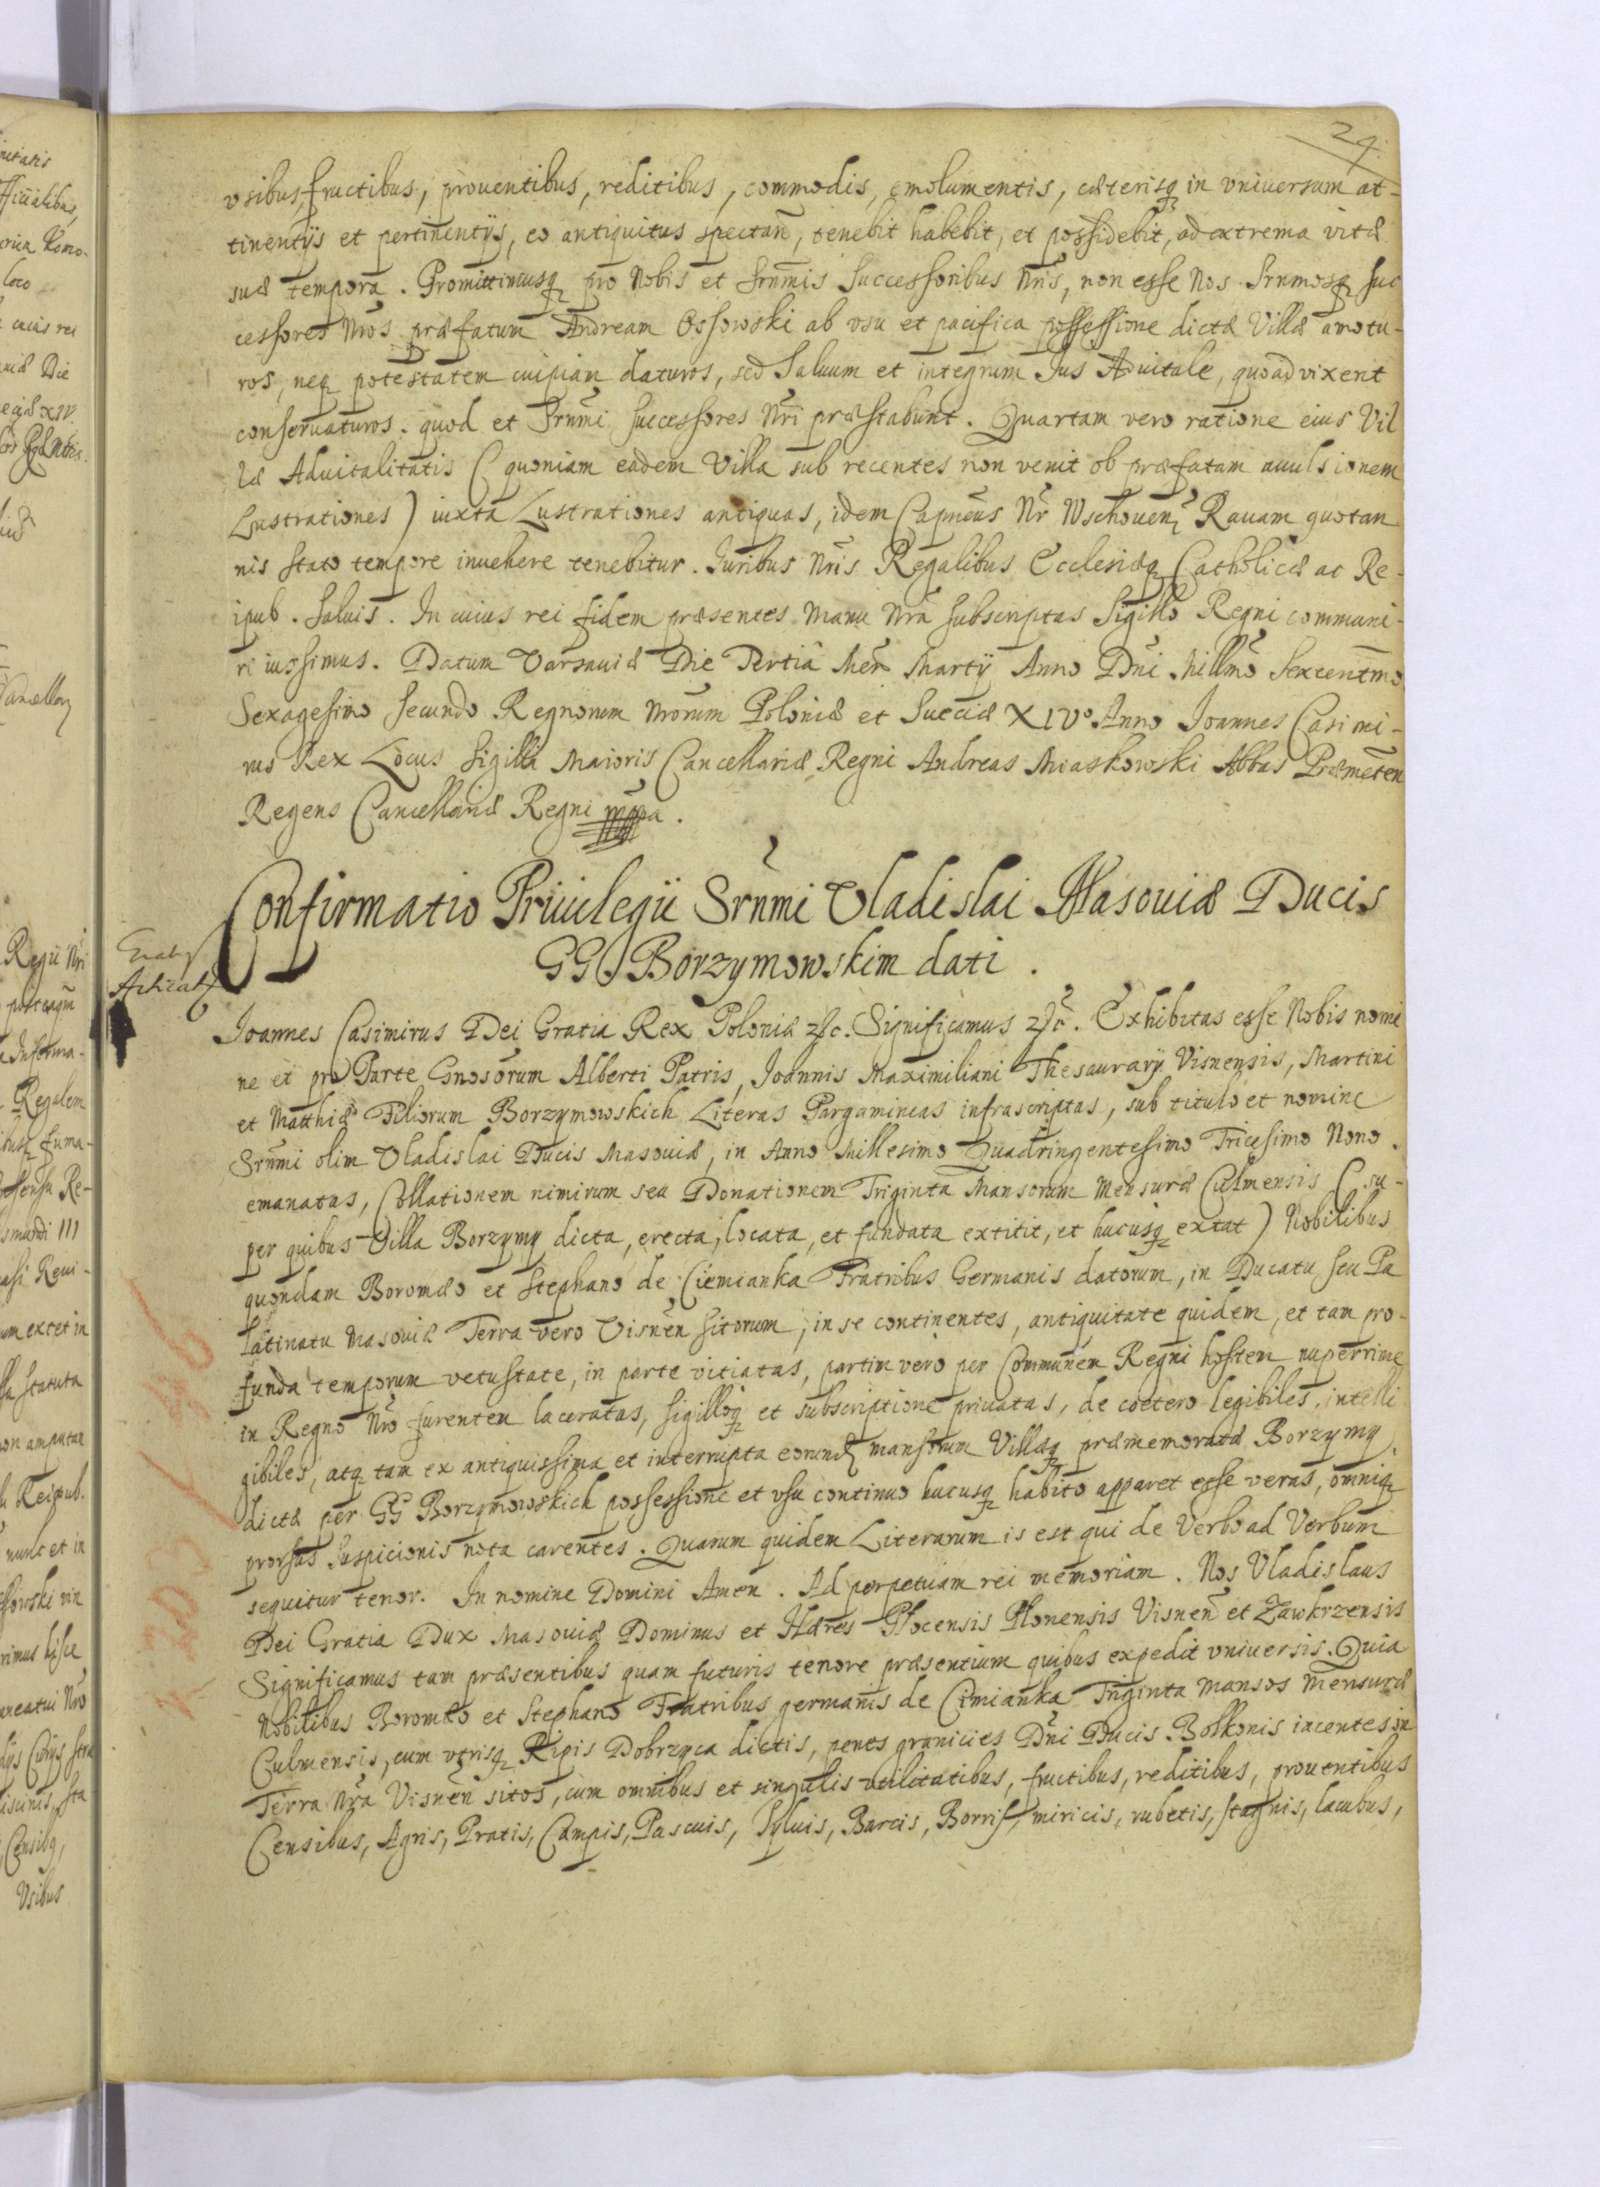 29.
vsibus, fructibus, prouentibus, reditibus, commodis, emolumentis, cæterisq3 in vniuersum at-
tinentijs et pertinentijs, eo antiquitus spectañ, tenebit habebit, et possidebit, ad extrema vitæ
suæ tempora. Promittimusq3 pro Nobis et Srnmis Successoribus Nris, non esse Nos Srnmosq3 suc
cessores Nros præfatum Andream Ossowski ab vsu et pacifica possessione dictæ Villæ amotu-
ros, neq3 potestatem cuipiam daturos, sed Saluum et integrum Jus Aduitale, quoad vixerit
conseruaturos. quod et Srnmi Successores Nri præstabunt. Quartam vero ratione eius Vil
læ Aduitalitatis (quoniam eadem Villa sub recentes non venit ob præfatam auulsionem
Lustrationes) iuxta Lustrationes antiquas, idem Capneus Nr Wschouen Rauam quotan
nis stato tempore inuehere tenebitur. Juribus Nris Regalibus Ecclesiæq3 Catholicæ ac Re-
ipub. Saluis. In cuius rei fidem præsentes Manu Nra subscriptas Sigillo Regni communi-
ri iussimus. Datum Varsauiæ Die Tertia Men Martij Anno Dni Millmo Sexcentmo
Sexagesimo Secundo Regnorum Nrorum Poloniæ et Sueciæ XIVo Anno Joannes Casimi-
rus Rex Locus Sigilli Maioris Cancellariæ Regni Andreas Miaskowski Abbas Præmeten
Regens Cancellariæ Regni mppa.
Confirmatio Priuilegii Srnmi Vladislai Masouiæ Ducis
GG Borzymowskim dati.
Joannes Casimirus Dei Gratia Rex Poloniæ &c. Significamus &c. Exhibitas esse Nobis nomi
ne et pro Parte Gnosorum Alberti Patris, Joannis Maximiliani Thesaurarij Visnensis, Martini
et Matthiæ Filiorum Borzymowskich Literas Pargamineas infrascriptas, sub titulo et nomine
Srnmi olim Vladislai Ducis Masouiæ, in Anno Millesimo Quadringentesimo Tricesimo Nono.
emanatas, Collationem nimirum seu Donationem Triginta Mansorum Mensuræ Culmensis (su-
per quibus Villa Borzymy dicta, erecta, locata, et fundata extitit, et hucusq3 extat) Nobilibus
quondam Boromæo et Stephano de Ciemianka Fratribus Germanis datorum, in Ducatu seu Pa
latinatu Masouiæ Terra vero Visnen sitorum, in se continentes, antiquitate quidem, et tam pro-
funda temporum vetustate, in parte vitiatas, partim vero per Communem Regni hostem nuperrime
in Regno Nro furentem laceratas, sigilloq3 et subscriptione priuatas, de coetero legibiles, intelli
gibiles, atq3 tam ex antiquissima et interrupta eorund mansorum Villæq3 præmemoratæ Borzymy
dictæ per GG Borzymowskich possessione et vsu continuo hucusq3 habito apparet esse veras, omniq3
prorsus suspicionis nota carentes. Quarum quidem Literarum is est qui de Verbo ad Verbum
sequitur tenor. In nomine Domini Amen. Ad perpetuam rei memoriam. Nos Vladislaus
Dei Gratia Dux Masouiæ Dominus et Hæres Plocensis Plonensis Visnen et Zawkrzensis
Significamus tam præsentibus quam futuris tenore præsentium quibus expedit vniuersis. Quia
Nobilibus Boromeo et Stephano Fratribus germanis de Cimianka Triginta Mansos Mensuræ
Culmensis, cum vtrisq3 Ripis Dobrzyca dictis, penes granicies Dni Ducis Bolkonis iacentes in
Terra Nra Visnen sitos, cum omnibus et singulis vtilitatibus, fructibus, reditibus, prouentibus
Censibus, Agris, Pratis, Campis, Pascuis, Syluis, Barcis, Borris, miricis, rubetis, stagnis, lacubus,